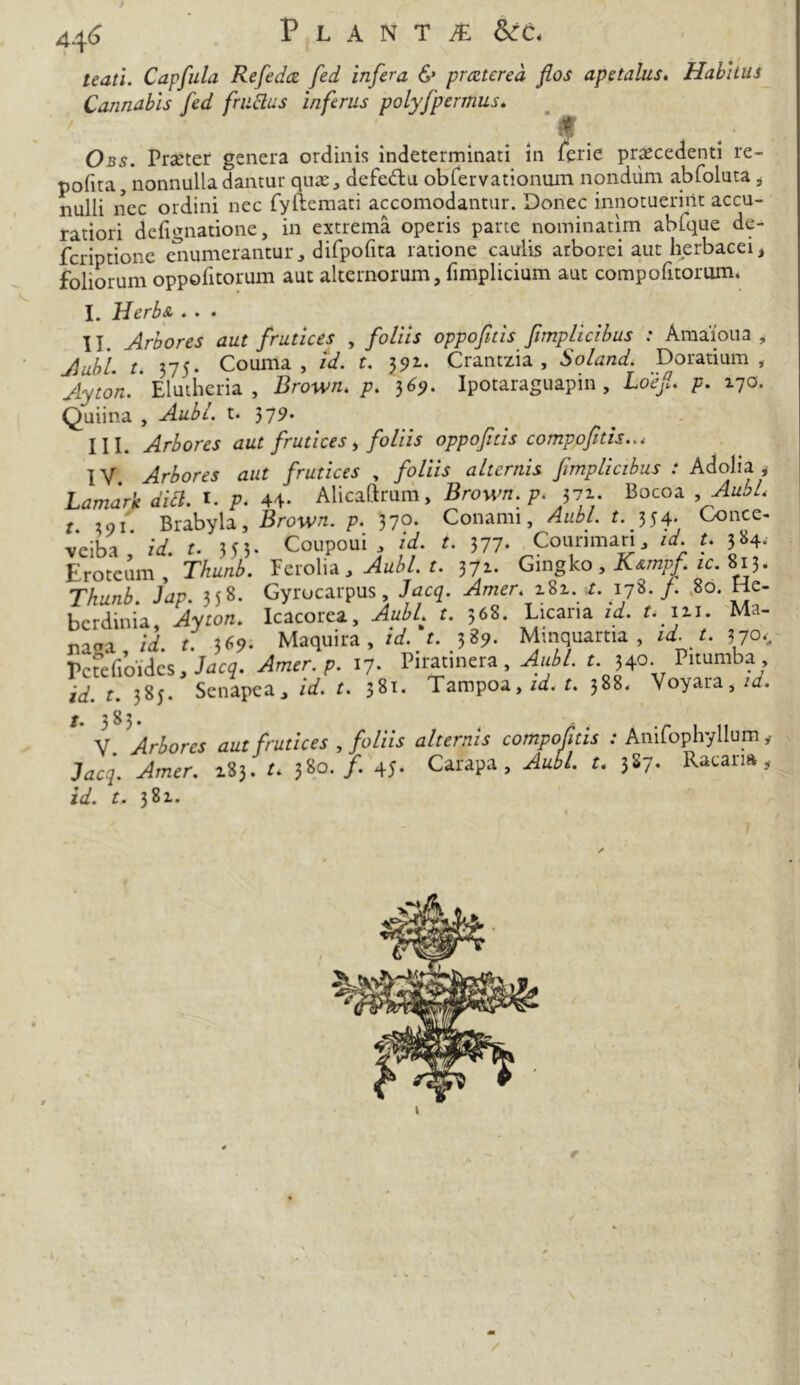 446 PLANTÆ &c.
teati. Capſula Reſedæ ſed infera & prætereà flos apetalus. Habitus
Cannabis ſed fructus inferus polyſpermus.
Obs. Præter genera ordinis indeterminati in ſerie præcedenti re-
poſita, nonnulla dantur quæ, defectu obſervationum nondùm abſoluta,
nulli nec ordini nec ſyſtemati accomodantur. Donec innotuerint accu-
ratiori deſignatione, in extremâ operis parte nominatìm abſque de-
ſcriptione enumerantur, diſpoſita ratione caulis arborei aut herbacei,
foliorum oppoſitorum aut alternorum, ſimplicium aut compoſitorum.
I. Herbæ . . .
II. Arbores aut frutices, foliis oppoſitis ſimplicibus : Amaïoua,
Aubl. t. 375. Couma, id. t. 392. Crantzia, Soland. Doratium,
Ayton. Elutheria, Brown. p. 369. Ipotaraguapin, Loëfl. p. 270.
Quiina, Aubl. t. 379.
III. Arbores aut frutices, foliis oppoſitis compoſitis...
IV. Arbores aut frutices, foliis alternis ſimplicibus : Adolia,
Lamark dict. 1. p. 44. Alicaſtrum, Brown. p. 372. Bocoa, Aubl.
t. 391. Brabyla, Brown. p. 370. Conami, Aubl. t. 354. Conce-
veiba, id. t. 353. Coupoui, id. t. 377. Courimari, id. t. 384.
Eroteum, Thunb. Ferolia, Aubl. t. 372. Gingko, Kæmpf. ic. 813.
Thunb. Jap. 358. Gyrocarpus, Jacq. Amer. 282. t. 178. f. 80. He-
berdinia, Ayton. Icacorea, Aubl. t. 368. Licaria id. t. 121. Ma-
naga, id. t. 369. Maquira, id. t. 389. Minquartia, id. t. 370.
Peteſioïdes, Jacq. Amer. p. 17. Piratinera, Aubl. t. 340. Pitumba,
id. t. 385. Senapea, id. t. 381. Tampoa, id. t. 388. Voyara, id.
t. 383.
V. Arbores aut frutices, foliis alternis compoſitis : Aniſophyllum,
Jacq. Amer. 283. t. 380. f. 45. Carapa, Aubl. t. 387. Racaria,
id. t. 382.